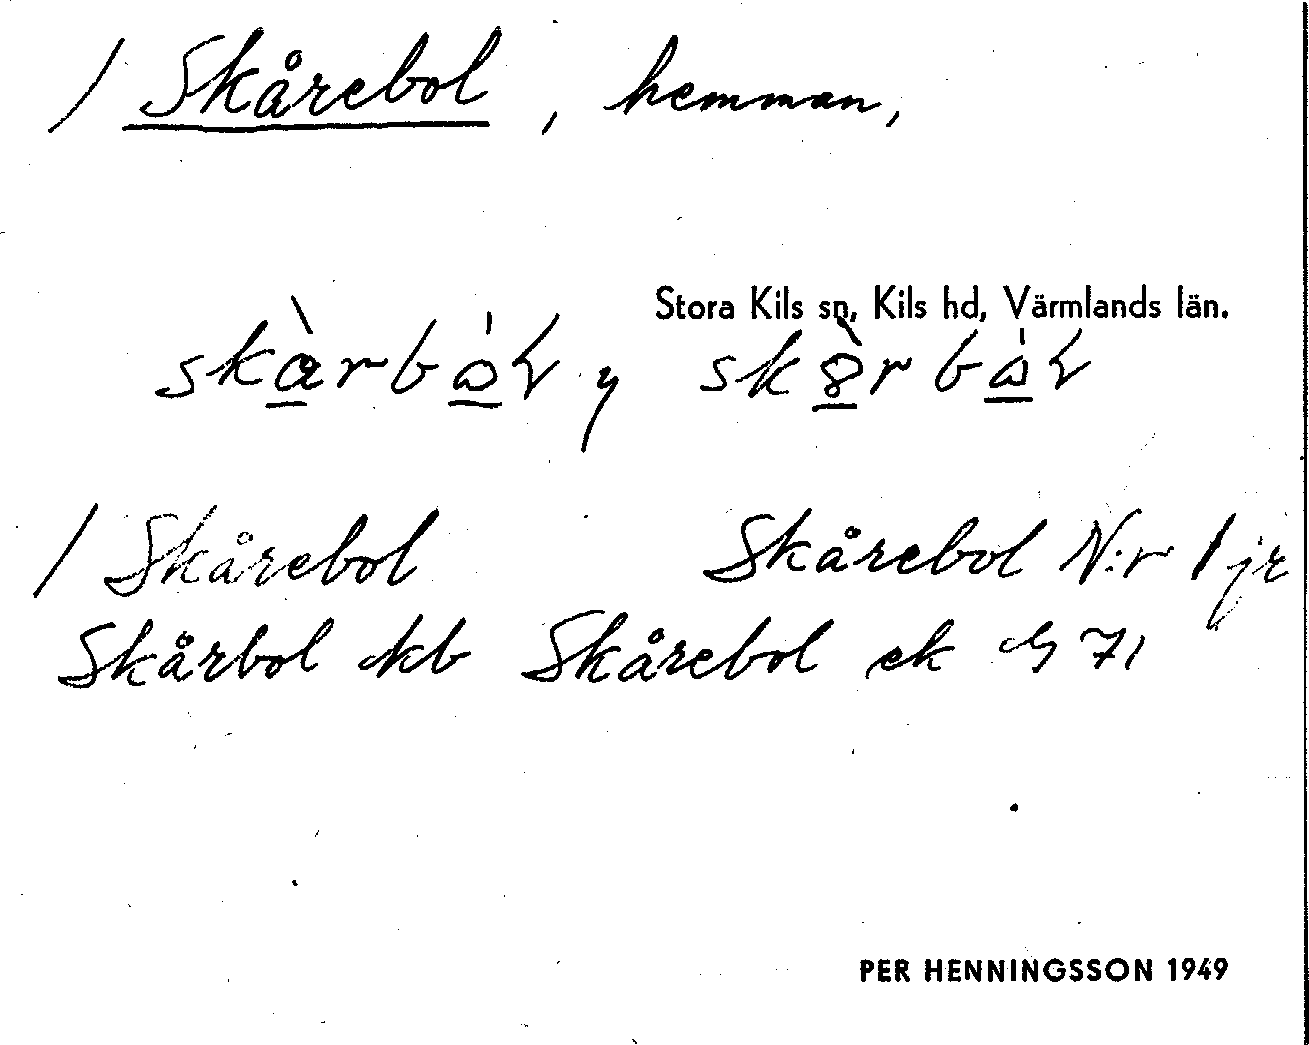 / Skårebol, hemman,
Stora Kils sn, Kils hd, Värmlands län.
/ Skårebol Skårebol N:r 1 jr
Skårbol kb Skårebol ek 71
PER HENNINGSSON 1949